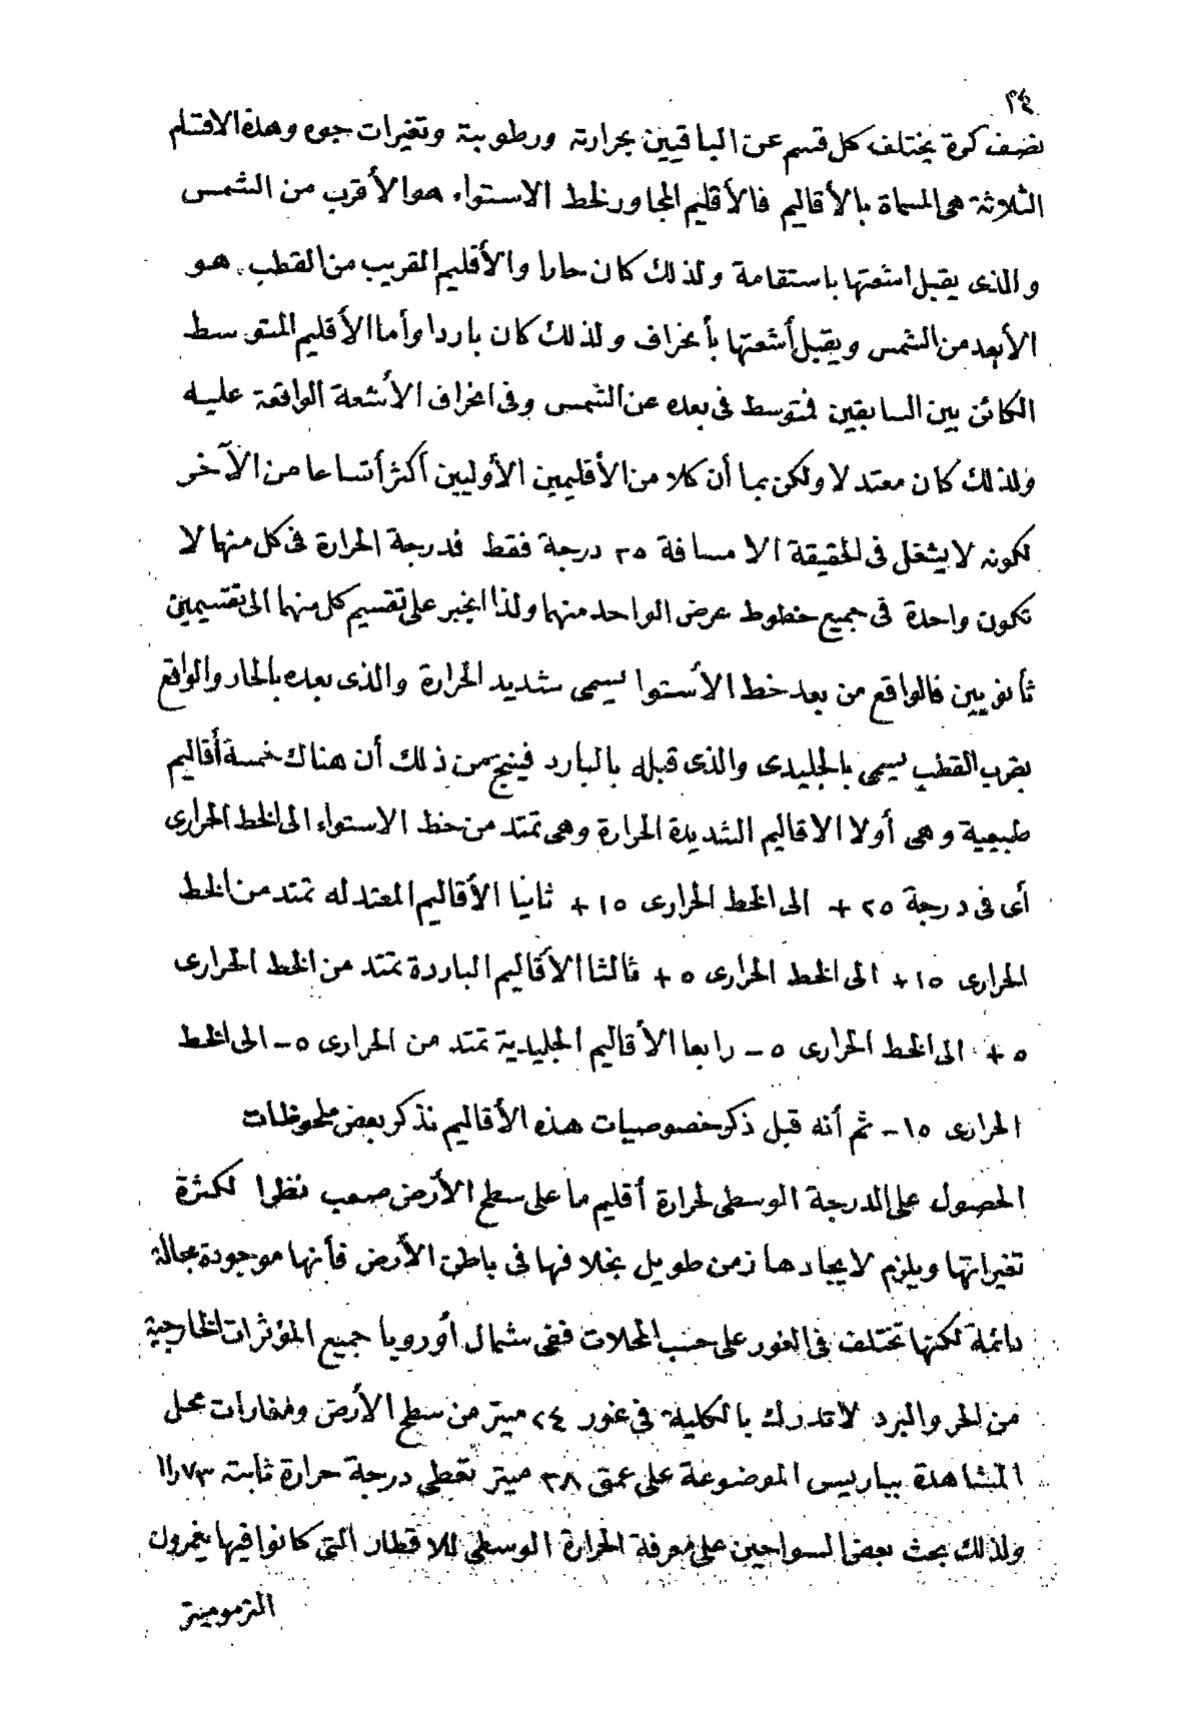 ٢٤
نصف كرة يختلف كل قسم عن الباقيين بحرارته ورطوبته وتغيرات جوه وهذه الاقسام
الثلاثة هى المسماة بالأقاليم فالأقليم المجاور لخط الاستواء هو الأقرب من الشمس
والذى يقبل اشعتها باستقامة ولذلك كان حارا والأقليم القريب من القطب هو
الأبعد من الشمس ويقبل أشعتها بأنحراف ولذلك كان باردا وأما الأقليم المتوسط
الكائن بين السابقين فمتوسط فى بعده عن الشمس وفى انحراف الأشعة الواقعة عليه
ولذلك كان معتدلا ولكن بما أن كلا من الأقليمين الأوليين أكثر أتساعا من الآخر
لكونه لا يشغل فى الحقيقة الا مسافة ٢٥ درجة فقط فدرجة الحرارة فى كل منها لا
تكون واحدة فى جميع خطوط عرض الواحد منهما ولذا انجبر على تقسيم كل منهما الى تقسيمين
ثانويين فالواقع من بعد خط الأستوا يسمى شديد الحرارة والذى بعده بالحار والواقع
بقرب القطب يسمى بالجليدى والذى قبله بالبارد فينتج من ذلك أن هناك خمسة أقاليم
طبيعية وهى أولا الاقاليم الشديدة الحرارة وهى تمتد من خط الاستواء الى الخط الحرارى
أى فى درجة ٢٥ + الى الخط الحرارى ١٥ + ثانيا الأقاليم المعتدله تمتد من الخط
الحرارى ١٥ + الى الخط الحرارى ٥ + ثالثا الأقاليم الباردة تمتد من الخط الحرارى
٥ + الى الخط الحرارى ٥ - رابعا الأقاليم الجليدية تمتد من الحرارى ٥ - الى الخط
الحرارى ١٥ - ثم أنه قبل ذكر خصوصيات هذه الأقاليم نذكر بعض ملحوظات
الحصول على الدرجة الوسطى لحرارة أقليم ما على سطح الأرض صعب نظرا لكثرة
تغيراتها ويلزم لايجادها زمن طويل بخلافها فى باطن الأرض فأنها موجودة بحالة
دائمة لكنها تختلف فى الغور على حسب المحلات ففى شمال أوروبا جميع المؤثرات الخارجية
من الحر والبرد لا تدرك بالكلية فى غور ٢٤ ميتر من سطح الأرض ومغارات محل
المشاهدة بباريس الموضوعة على عمق ٣٨ ميتر تعطى درجة حرارة ثابتة ١١٫٧٣
ولذلك بحث بعض السواحين على معرفة الحرارة الوسطى للاقطار التى كانوا فيها يغمرون
الترموميتر